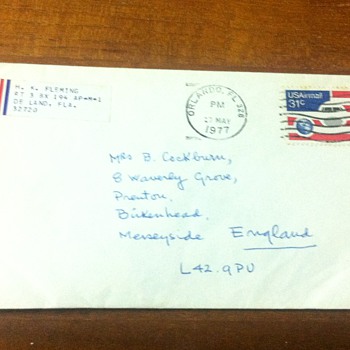 M. K. FLEMING
RT 3 BX 194 AP-M-1
DE LAND, FLA.
32720
ORLANDO, FL 328
PM
MAY
1977
USAirmail
31c
Mrs B. Cockburn,
8 Waverly Grove,
Prenton,
Birkenhead,
Merseyside England
L42.9PU